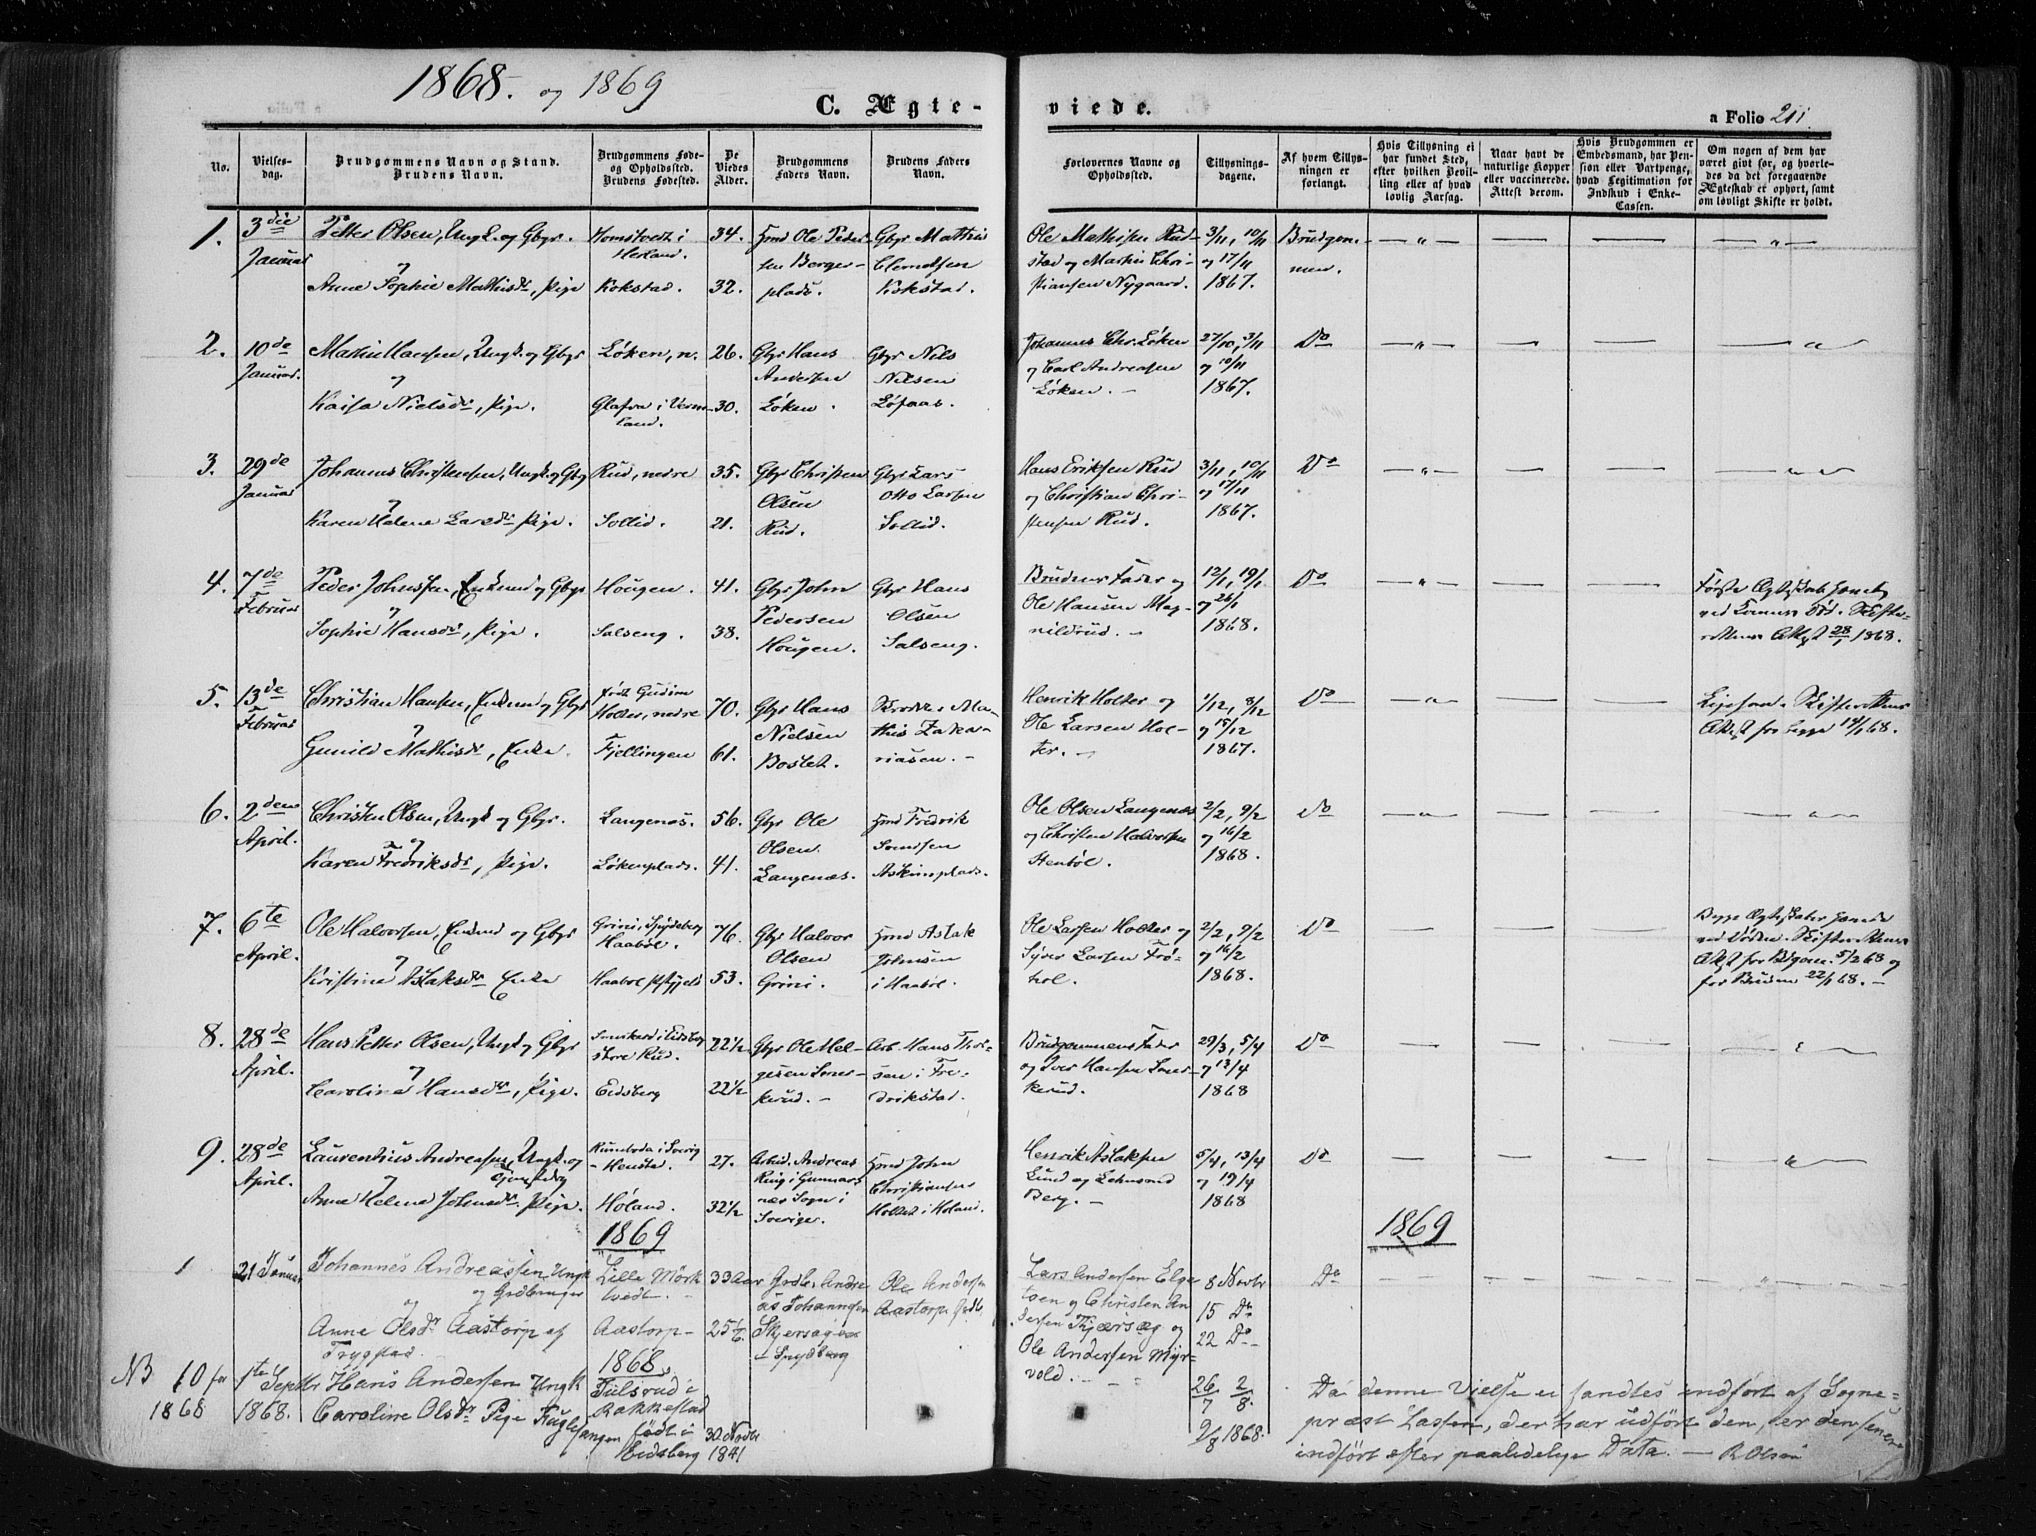 1868. og 1869
C. Ægte-
viede.
a Folio 211
No.
Vielses-
dag.
Brudgommens Navn og Stand.
Brudens Navn.
Brudgommens Føde-
og Opholdssted.
Brudens Fødested.
De
Viedes
Alder.
Brudgommens
Faders Navn.
Brudens Faders
Navn.
Forlovernes Navne og
Opholdssted.
Tillysnings-
dagene.
Af hvem Tillys-
ningen er
forlangt.
Hvis Tillysning ei
har fundet Sted,
efter hvilken Bevil-
ling eller af hvad
lovlig Aarsag.
Naar havt de
naturlige Kopper
eller vaccinerede.
Attest derom.
Hvis Brudgommen er
Embedsmand, har Pen-
sion eller Vartpenge,
hvad Legitimation for
Indskud i Enke-
Cassen.
Om nogen af dem har
været gift før, og hvorle-
des da det foregaaende
Ægteskab er ophørt, samt
om lovligt Skifte er holdt.
1.
3die
Januar
Petter Olsen, Ungk. og Gbgr.
og
Anne Sophie Mathisdr, Pige
Homstvedt i
Hekland.
Kokstad.
34.
32.
Hmd Ole Peder-
sen Berger-
plads.
Gbgr Mathis
Clemetsen
Kokstad.
Ole Mathisen Rud-
stad og Martin Chri-
stiansen Nygaard.
3/11, 10/11
og 17/11
1867.
Brudgom-
men.
2.
10de
Januar.
Martin Hansen, Ungk. og Gbgr
og
Kaisa Nielsdr, Pige.
Løken, n.
Glafva i Verm-
land.
26.
30.
Gbgr Hans
Andersen
Løken.
Gbgr Nils
Nilsen
Løfaas.
Johannes Chr. Løken
og Carl Andreasen
Løken.
27/10, 3/11
og 10/11
1867.
Do
3.
29de
Januar
Johannes Christensen, Ungk. og Gbgr
og
Karen Helene Larsdr Pige.
Rud, nedre
Sollid.
35.
21.
Gbgr Christen
Olsen
Rud.
Gbgr Lars
Otto Larsen
Sollid.
Hans Eriksen Rud
og Christian Chri-
stensen Rud.
3/11, 10/11
og 17/11
1867.
Do
4.
7de
Februar
Peder Johnsen, Enkemd og Gbgr
og
Sophie Hansdr, Pige.
Hougen.
Salseng.
41.
38.
Gbgr John
Pedersen
Hougen.
Gbgr Hans
Olsen
Salseng.
Brudens Fader og
Ole Hansen Mag-
nildrud.
12/1, 19/1
og 26/1
1868.
Do
Første Ægteskab hævet
ved Konens Død. Skifte-
rettens Attest 28/1 1868.
5.
13de
Februar
Christian Hansen, Enkem og Gbgr
og
Gunild Mathisdr, Enke
født Gudim
Holter, nedre
Fjellingen
70.
61.
Gbgr Hans
Nielsen
Boslet.
Mathis Zaka-
riasen.
Henrik Holter og
Ole Larsen Hol-
ter.
1/12, 8/12
og 15/12
1867.
Do
Ligesom. Skifterettens
Attest for begge 14/1 68.
6.
2den
April.
Christen Olsen, Ungk og Gbgr.
og
Karen Fredriksdr, Pige.
Langenæs.
Løkenplads.
56.
41.
Gbgr Ole
Olsen
Langenæs.
Hmd Fredrik
Svendsen
Askimplads.
Ole Olsen Langenæs
og Christen Halvorsen
Stenbøl.
2/2, 9/2
og 16/2
1868.
Do
7.
6te
April.
Ole Halvorsen, Enkemd og Gbgr
og
Kristine Aslaksdr Enke
Grini i Spydeberg
Haabøl.
Haabøl Præstegjeld
76.
53.
Gbgr Halvor
Olsen
Grini.
Hmd Aslak
Johnsen
i Haabøl.
Ole Larsen Holter og
Syver Larsen Frø-
hol.
2/2, 9/2
og 16/2
1868.
Do
Begge Ægteskaber hævede
ved Døden. Skifterettens
Attest for Brgom. 5/2 68 og
for Bruden 22/1 68.
8.
28de
April.
Hans Petter Olsen, Ungk og Gbgr
og
Caroline Hansdr, Pige.
Eidsberg
22½
22½
Gbgr Ole Hel-
gesen Smer-
kerud.
Arb. Hans Thor-
sen i Fre-
drikstad.
Brudgommens Fader
og Iver Hansen Smer-
kerud.
29/3, 5/4
og 13/4
1868
Do
9.
28de
April.
Laurentius Andreasen, Ungk. og
og
Anne Helene Johnsdr, Pige.
Høland.
27.
32½
Arbeid. Andreas
Ring i Gunnars-
næs Sogn i
Sverige.
Hmd John
Christiansen
Holtet i Høland.
Henrik Aslaksen
Lund og
Berg.
5/4, 13/4
og 19/4
1868
Do
1869
1869
1
21 Januar
Johannes Andreassen Ungk
og Grdbruger
og
Anne Olsdr Aastorp af
Trygstad.
Lille Mørk
tvedt.
Aastorp
33 Aar
25½
Grdb. Andre
as Johannesen
Skjersager
Spydberg
Ole Andersen
Aastorp Grdb.
Lars Andersen Elge
tsen og Christen An
dersen Kjærsæg og
Ole Andersen Myr-
vold.
8 Novbr
15 Do
22 Do
Do
1868
NB 10 for
1868
1ste Septbr
1868.
Hans Andersen Ungk
Caroline Olsdr Pige Fuglesangen
Tulsrud i
Rakkestad
født i
Eidsberg
30 Novbr
1841
26/7 2/8
9/8 1868.
Da denne Vielse ei fandtes indført af Sogne-
præst Lassen, der har udført den, er den senere
indført efter paalidelige Data. — R Olsen